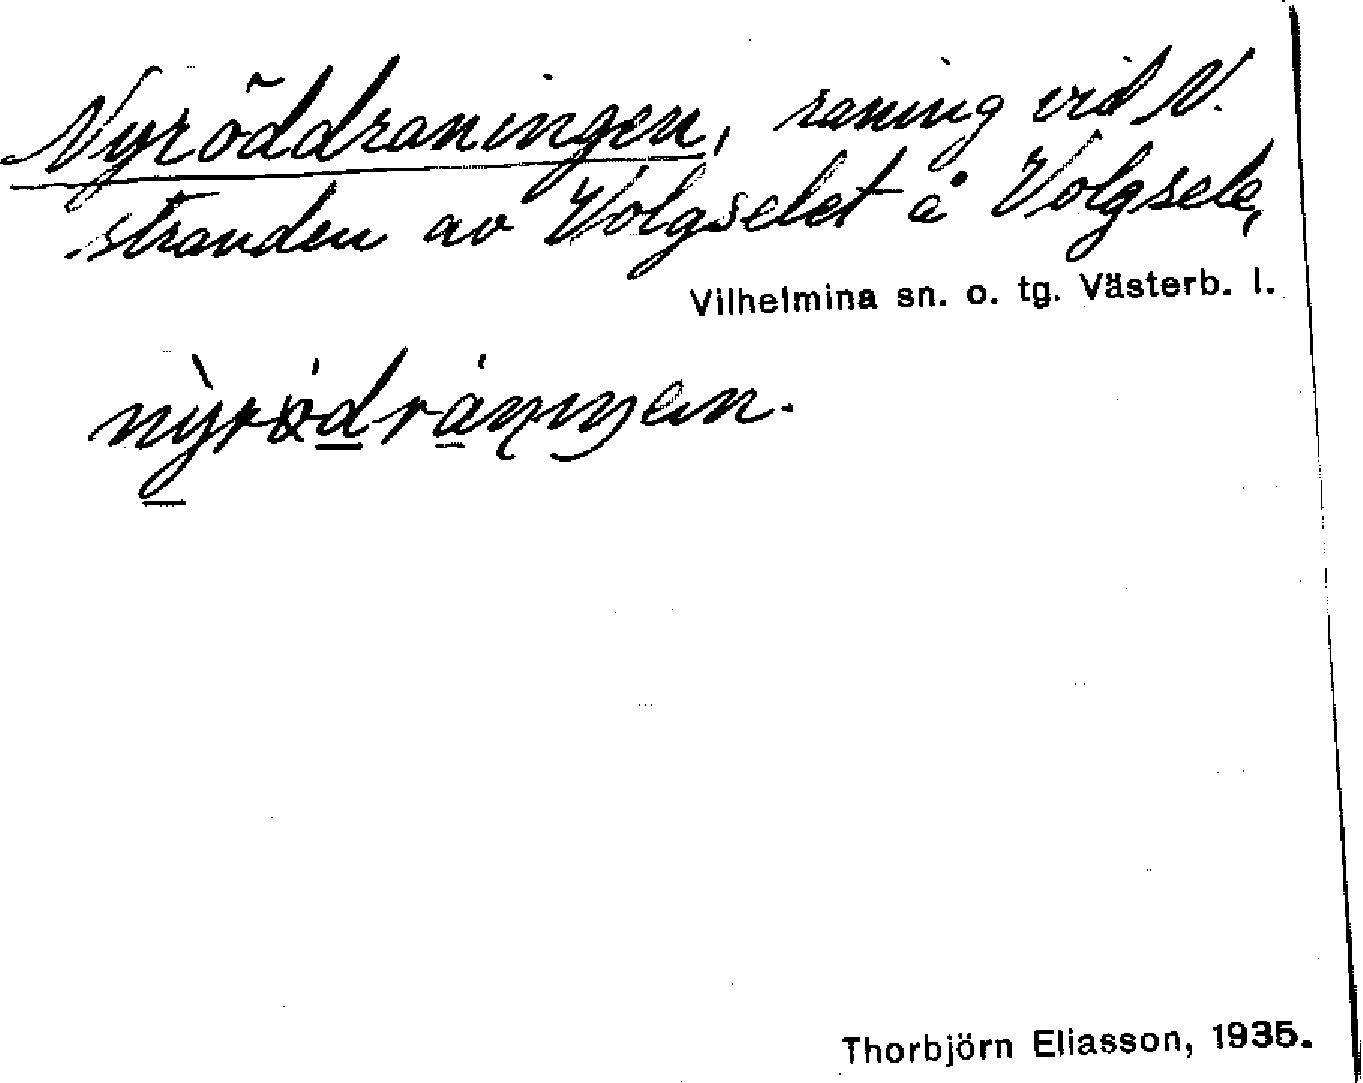 Nyröddraningen, raning vid N.
stranden av Volgselet å Volgsele,
Vilhelmina sn. o. tg. Västerb. l.
Thorbjörn Eliasson, 1935.